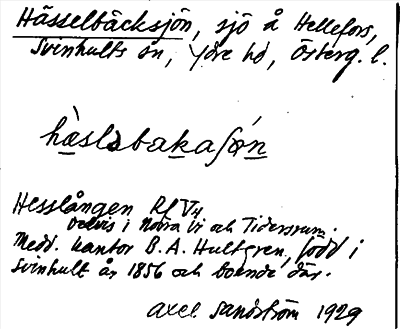 Hässelbäcksjön, sjö å Hellefors,
Svinhults sn, Ydre hd, Österg. l.
hàslsbakaʃön
Hesslången Rf V4
delvis i Norra Vi och Tidersrum.
Medd. kantor B. A. Hultgren, född i
Svinhult år 1856 och boende där.
Axel Sandström 1929